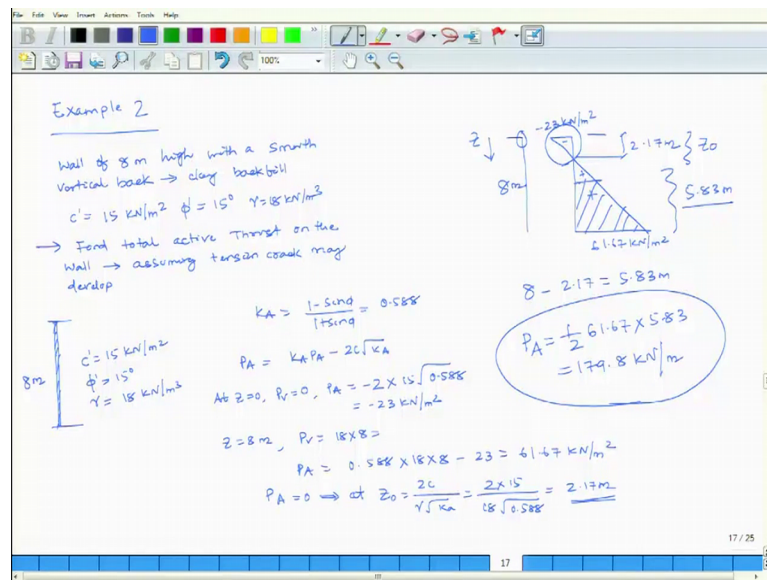 File Edit View Insert Actions Tools Help
B I
100%
Example 2
Wall of 8 m high with a smooth
vertical back → clay backfill
c' = 15 KN/m² φ' = 15° γ = 18 KN/m³
→ Find total active Thrust on the
wall → assuming tension crack may
develop
8m
c' = 15 KN/m²
φ' = 15°
γ = 18 KN/m³
KA = (1 - sinφ)/(1 + sinφ) = 0.588
PA = KA PA - 2C√KA
At Z=0, PV=0, PA = -2 × 15√0.588
= -23 KN/m²
Z = 8 m, PV = 18×8 =
PA = 0.588 × 18 × 8 - 23 = 61.67 KN/m²
PA = 0 ⟹ at Z0 = 2C/(γ√Ka) = (2 × 15)/(18√0.588) = 2.17m
-23 KN/m²
Z
-
2.17m } Z0
8m
+
+
5.83m
61.67 KN/m²
8 - 2.17 = 5.83m
PA = 1/2 61.67 × 5.83
= 179.8 KN/m
17 / 25
17